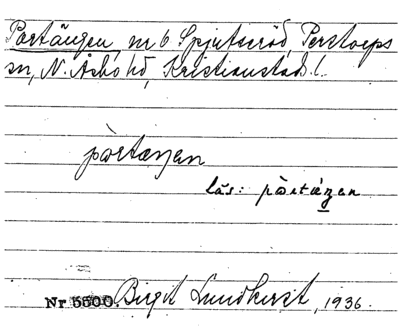 Portängen, nr 6 Spjutseröd, Perstorps
sn, N. Åsbo hd, Kristianstads l.
pòrtæŋen
läs: pòrtæ̀ŋen
Nr 5500. Birgit Lundkvist, 1936.